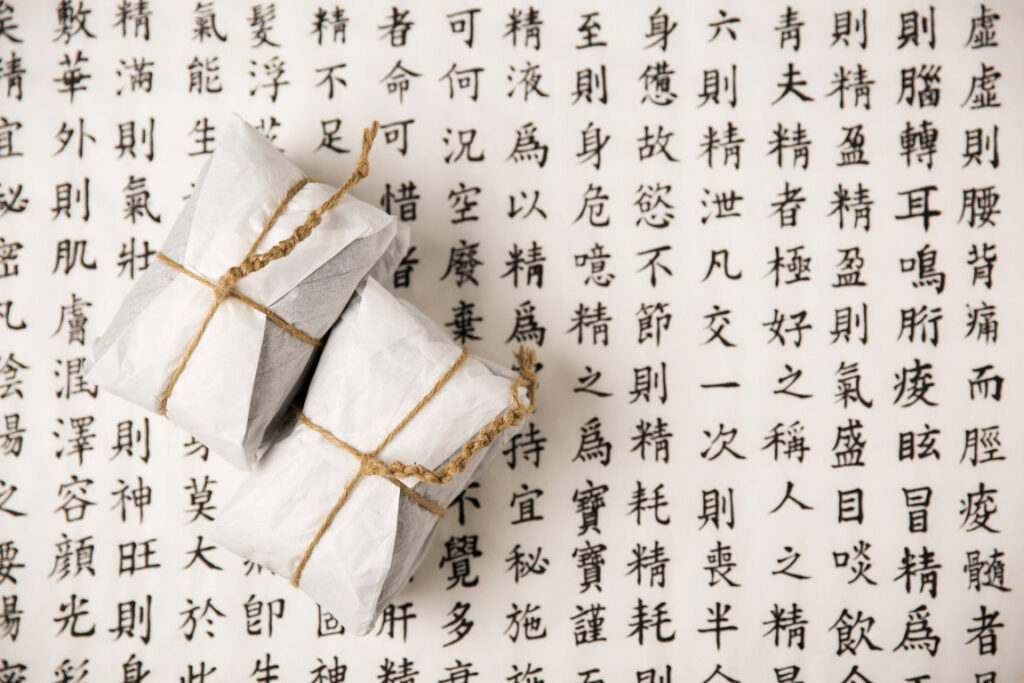 虛虛則腰背痛而脛痠髓者
則腦轉耳鳴胻痠眩冒精爲
則精盈精盈則氣盛目啖飲
青夫精者極好之稱人之精
六則精泄凡交一次則喪半
身憊故慾不節則精耗精耗則
至則身危噫精之爲寶寶謹
精液爲以精爲持宜秘施
可何況空廢棄不覺多
者命可惜者肝精
精不足固神
髮浮即生
氣能生莫大於此
精滿則氣壯則神旺則身
敷華外則肌膚潤澤容顏光彩
矣精宜秘密凡陰陽之腰陽